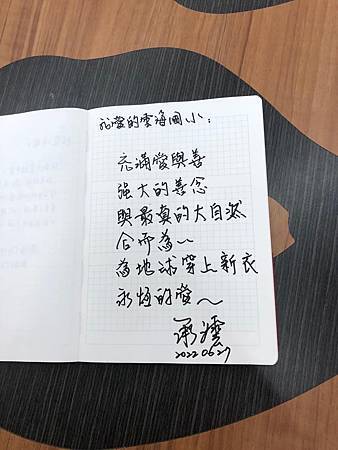 的雲海國小：
充滿愛與善
強大的善念
與最真的大自然
合而為一
為地球穿上新衣
永恆的愛～
2022.06.27